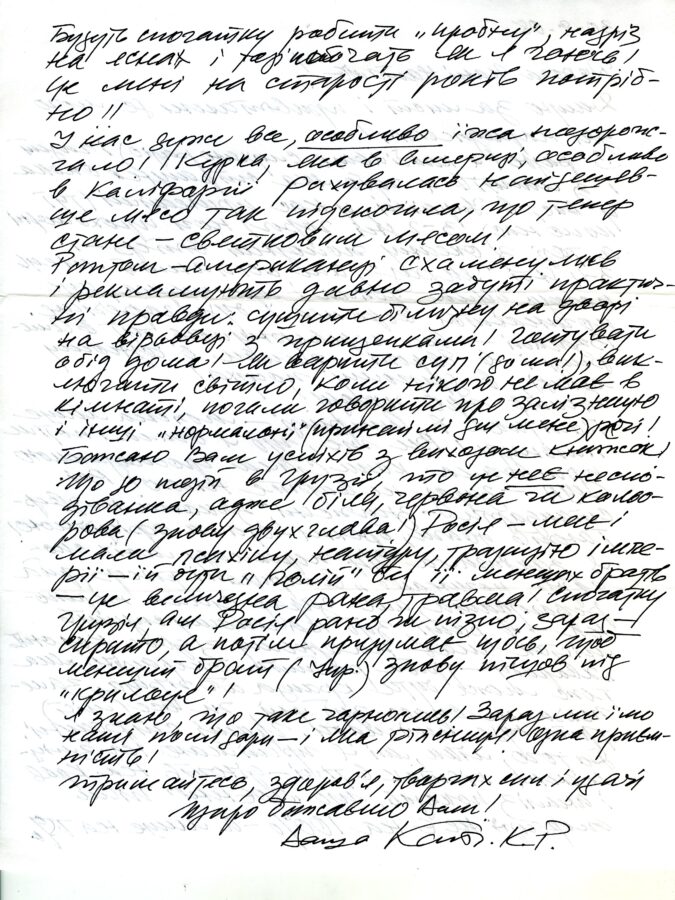 Будуть спочатку робити „пробку", надріз
на яснах і
це мені на старості років потріб-
но!!
У нас дуже все, особливо їжа подорож-
чало! Курка, яка в Америці, особливо
в Каліфорнії рахувалась найдешев-
ше мясо так підскочила, що тепер
стане – святковим мясом!
Раптом – американці схаменулись
і рекламують давно забуті практич-
ні правди: сушити білизну на дворі
на вірьовці з прищепками! Готувати
обід дома! Як варити суп (дома!), вик-
лючати світло, коли нікого немає в
кімнаті, почали говорити про залізницю
і інші „нормальні" (принаймі для мене) речі!
Бажаю Вам успіхів з виходом книжок!
Що до подій в Грузії, то це не є неспо-
діванка, адже біла, червона чи кольо-
рова (знову двухглава!) Росія – має і
мала психіку, натуру, традицію імпе-
рії – їй бути „голій" без її менших братів
– це величезна рана, травма! Спочатку
Грузія, але Росія рано чи пізно, зараз –
скрито, а потім придумає щось, щоб
менший брат (Укр.) знову пішов під
“крильце"!
Я знаю, що
наші помідори – і яка різниця і одна приєм-
ність!
Тримайтесь, здоров'я, творчих сил і удачі
щиро бажаємо Вам!
К.Р.